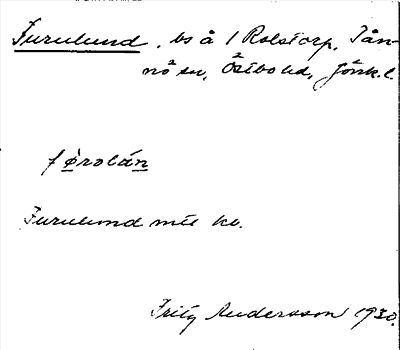 Furulund, bs å 1 Rolstorp, Tån-
nö sn, Östbo hd, Jönk.l.
fø̀rolán
Furulund mtl kv.
Fritz Andersson 1930.